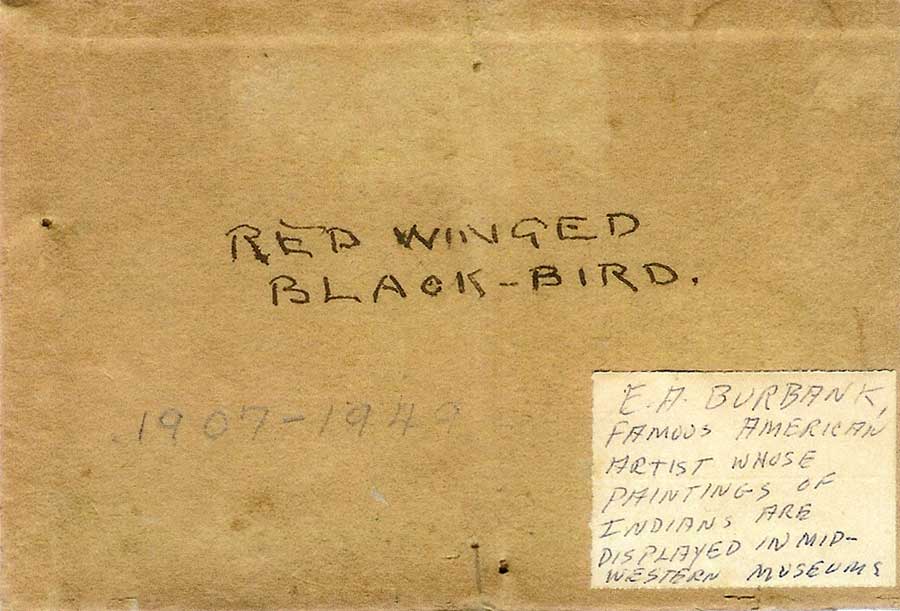 RED WINGED
BLACK-BIRD.
1907-1949
E.A. BURBANK,
FAMOUS AMERICAN
ARTIST WHOSE
PAINTINGS OF
INDIANS ARE
DISPLAYED IN MID-
WESTERN MUSEUMS